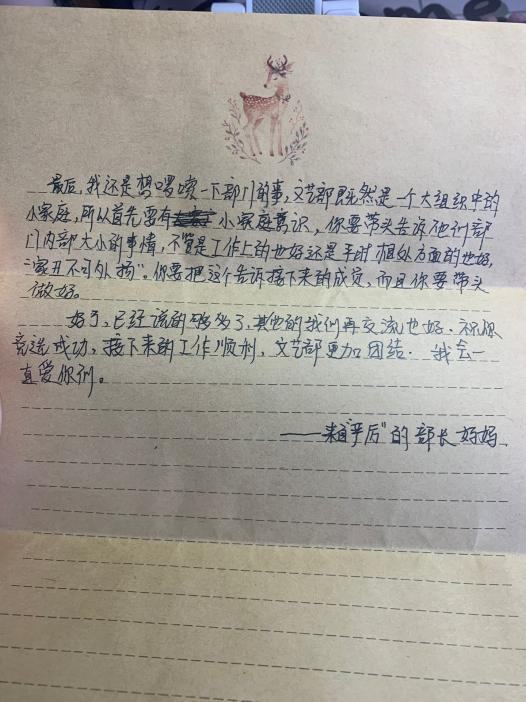 最后,我还是想啰嗦一下部门的事,文艺部既然是一个大组织中的
小家庭,所以首先要有小家庭意识,你要带头告诉他们部
门内部大小的事情,不管是工作上的也好还是平时相处方面的也好,
“家丑不可外扬”。你要把这个告诉接下来的成员,而且你要带头
做好。
好了,已经说的够多了,其他的我们再交流也好。祝你
竞选成功,接下来的工作顺利,文艺部更加团结.我会一
直爱你们。
——来自“严厉”的部长妈妈